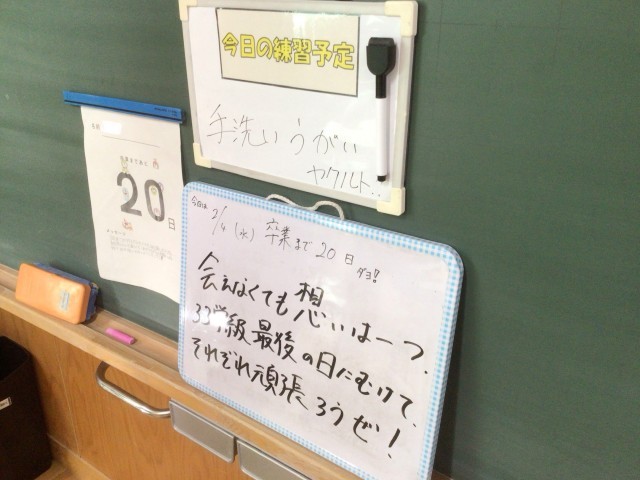 今日の練習予定
手洗いうがい
ヤクルト..
20
日
今日は 2/4 (水) 卒業まで20日
ダヨ!!
会えなくても想いは一つ.
33学級最後の日にむけて.
それぞれ頑張ろうぜ!